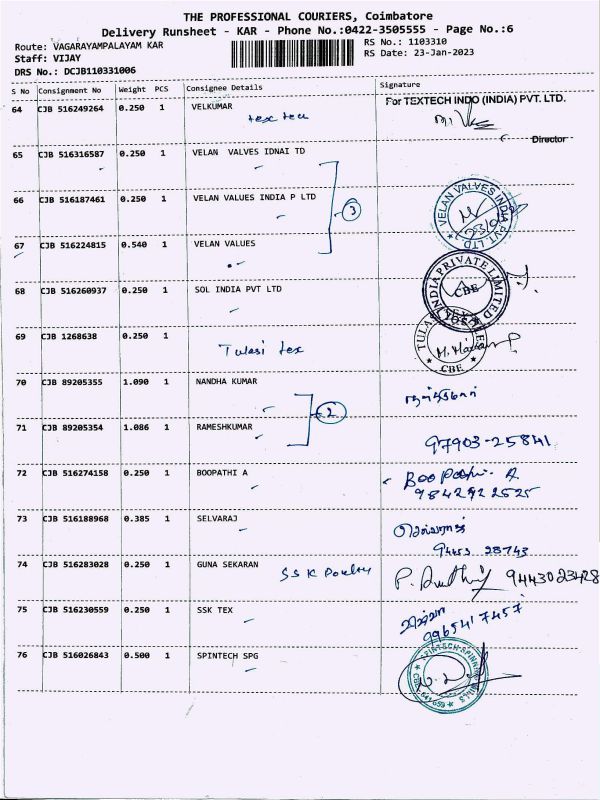 THE PROFESSIONAL COURIERS, Coimbatore
Delivery Runsheet - KAR - Phone No.:0422-3505555 - Page No.:6
Route: VAGARAYAMPALAYAM KAR
RS No.: 1103310
Staff: VIJAY
RS Date: 23-Jan-2023
DRS No.: DCJB110331006
S No Consignment No Weight PCS Consignee Details Signature
64 CJB 516249264 0.250 1 VELKUMAR For TEXTECH INDO (INDIA) PVT. LTD.
tex tech
Director
65 CJB 516316587 0.250 1 VELAN VALVES IDNAI TD
66 CJB 516187461 0.250 1 VELAN VALUES INDIA P LTD
3
VELAN VALVES INDIA PVT. LTD.
67 CJB 516224815 0.540 1 VELAN VALUES
68 CJB 516260937 0.250 1 SOL INDIA PVT LTD
INDIA PRIVATE LIMITED
CBE
69 CJB 1268638 0.250 1
Tulasi tex
CBE
70 CJB 89205355 1.090 1 NANDHA KUMAR
2
71 CJB 89205354 1.086 1 RAMESHKUMAR
97903-25841
72 CJB 516274158 0.250 1 BOOPATHI A
Boopathi. A
73 CJB 516188968 0.385 1 SELVARAJ
செல்வராஜ்
9453 28743
74 CJB 516283028 0.250 1 GUNA SEKARAN
SSK Poultry
9443023428
75 CJB 516230559 0.250 1 SSK TEX
9965417457
76 CJB 516026843 0.500 1 SPINTECH SPG